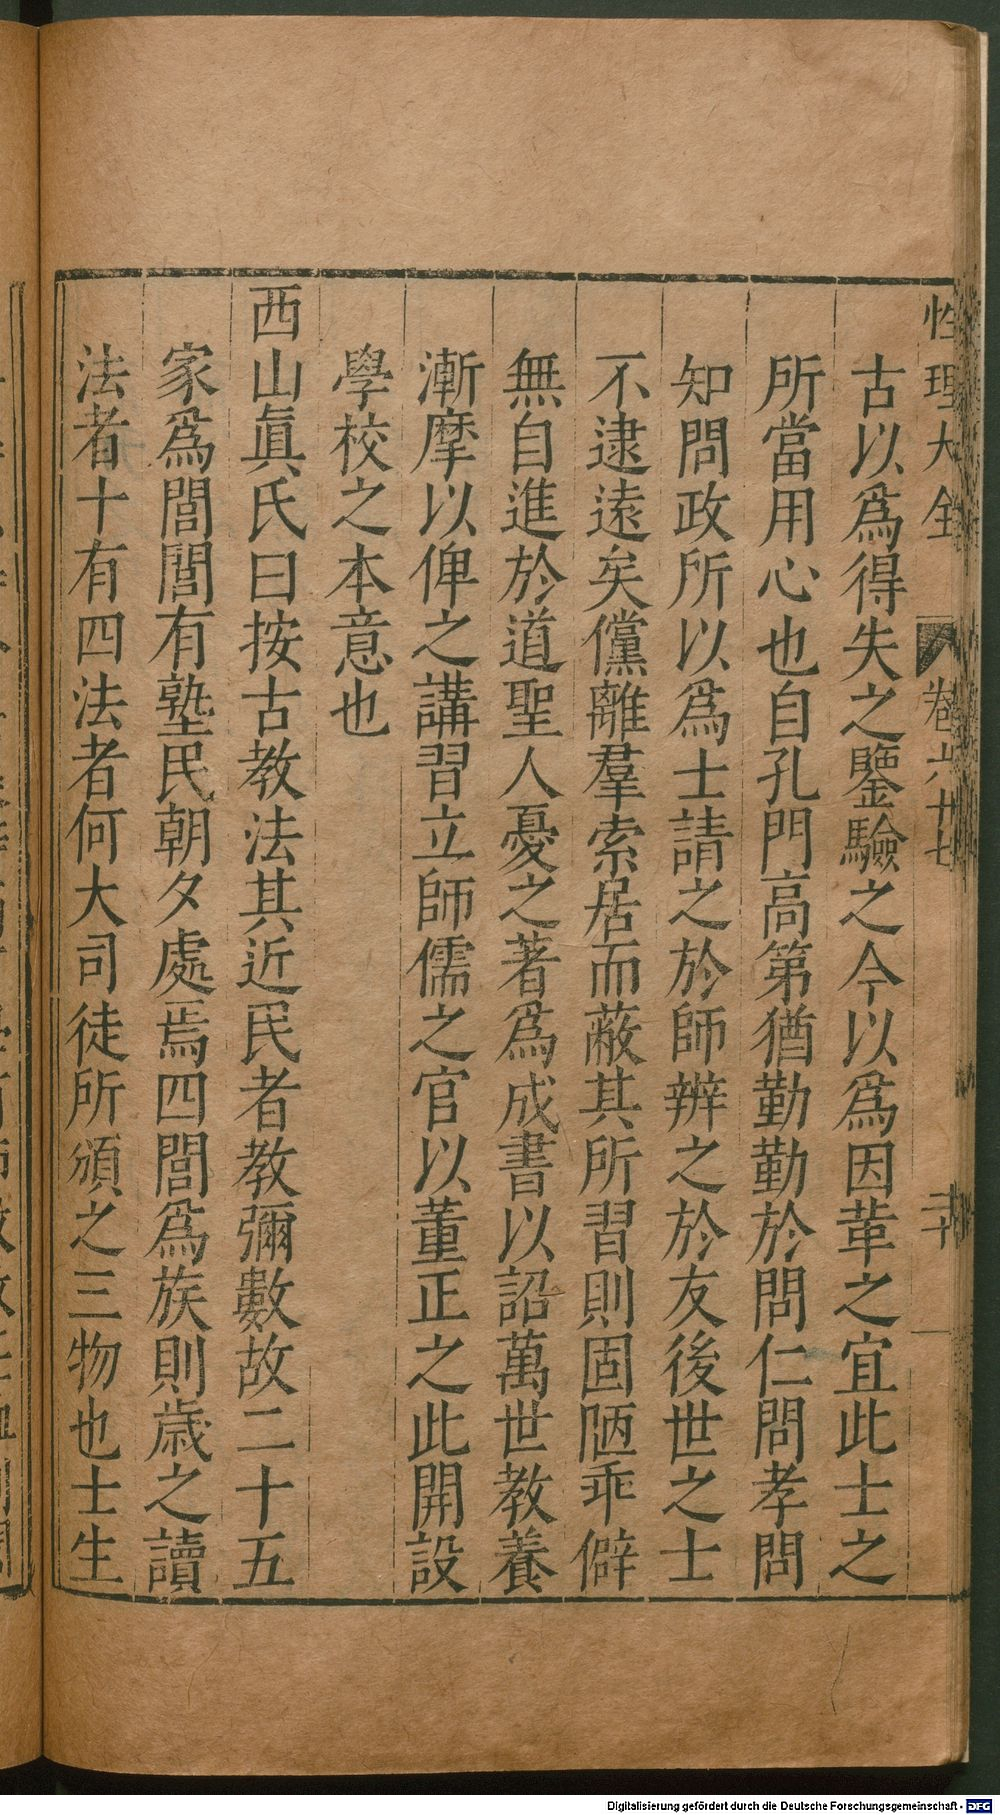 性理大全 卷六十七 二十
古以爲得失之鑒驗之今以爲因革之宜此士之
所當用心也自孔門高第猶勤勤於問仁問孝問
知問政所以爲士請之於師辨之於友後世之士
不逮遠矣儻離羣索居而蔽其所習則固陋乖僻
無自進於道聖人憂之著爲成書以詔萬世教養
漸摩以俾之講習立師儒之官以董正之此開設
學校之本意也
西山眞氏曰按古教法其近民者教彌數故二十五
家爲閭閭有塾民朝夕處焉四閭爲族則歲之讀
法者十有四法者何大司徒所頒之三物也士生
Digitalisierung gefördert durch die Deutsche Forschungsgemeinschaft - DFG